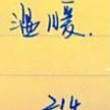 温暖.
214